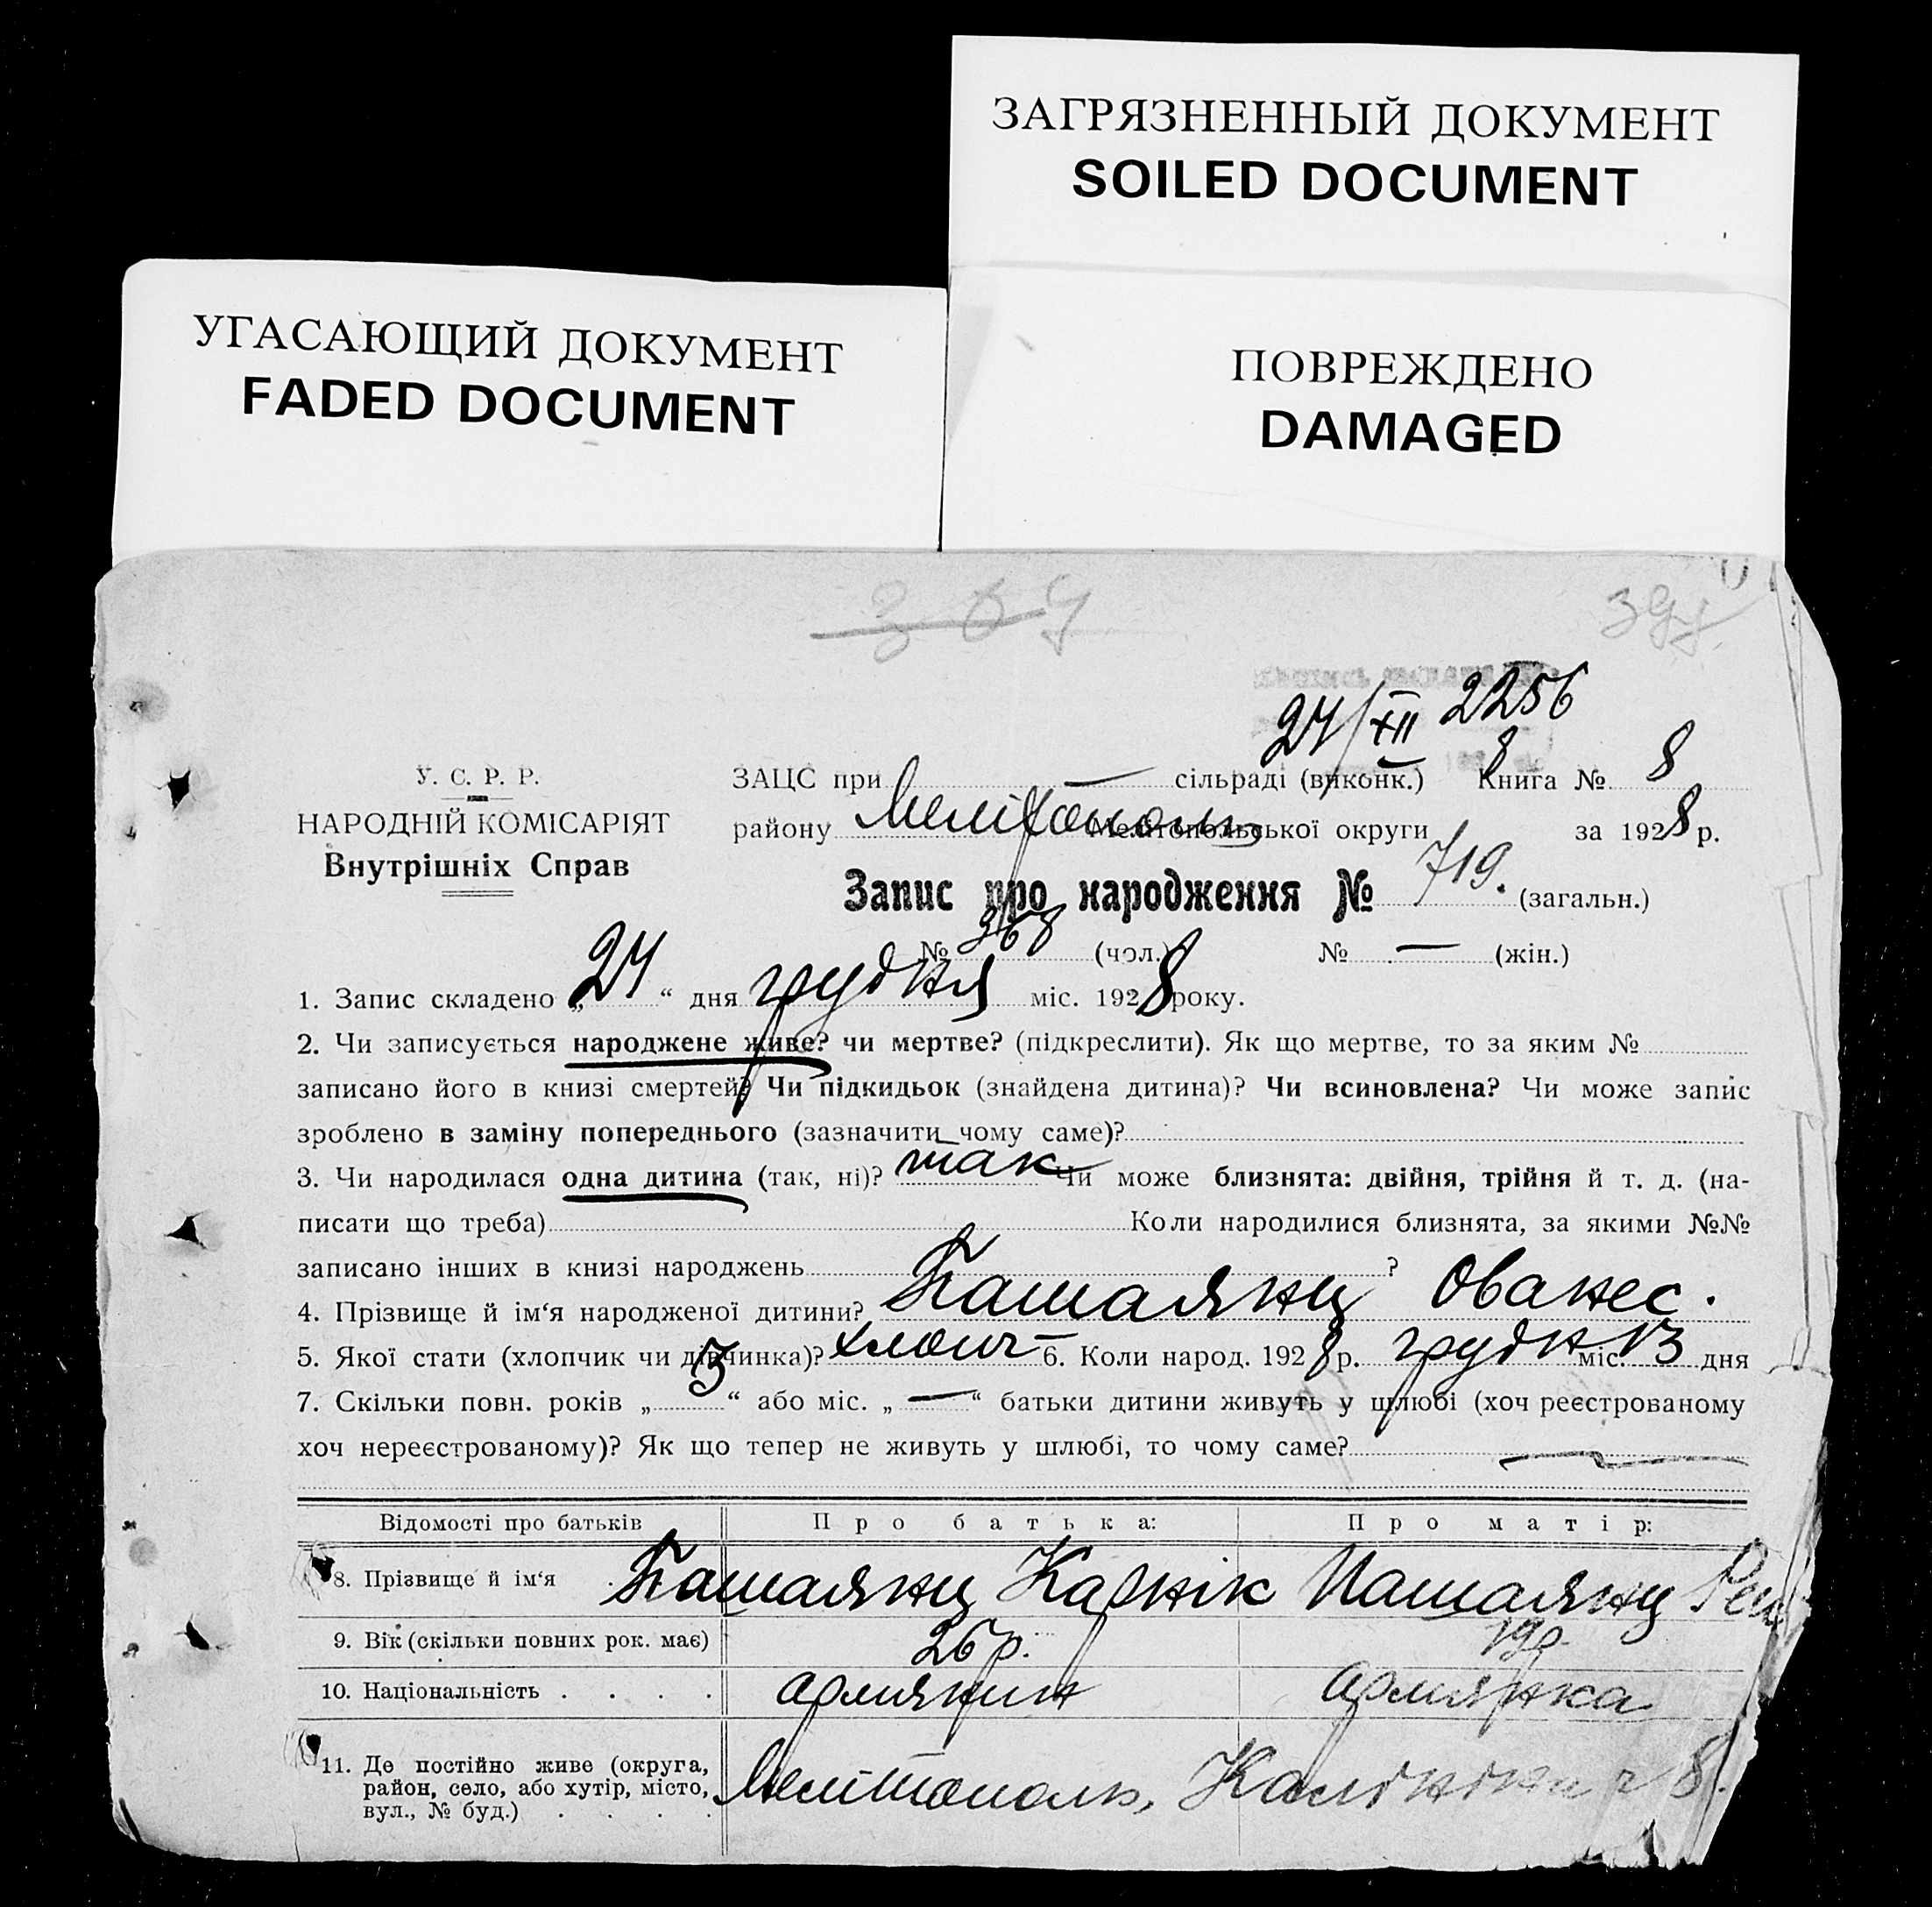 ЗАГРЯЗНЕННЫЙ ДОКУМЕНТ
SOILED DOCUMENT
УГАСАЮЩИЙ ДОКУМЕНТ
FADED DOCUMENT
ПОВРЕЖДЕНО
DAMAGED
369
24/XII 2256
У. С. Р. Р.
НАРОДНІЙ КОМІСАРІЯТ
Внутрішніх Справ
ЗАЦС при — сільраді (виконк.) Книга № 8
району Мелітополь Мелітопольської округи за 1928 р.
Запис про народження № 719. (загальн.)
№ 368 (чол.) № — (жін.)
1. Запис складено „24“ дня грудня міс. 1928 року.
2. Чи записується народжене живе? чи мертве? (підкреслити). Як що мертве, то за яким №
записано його в книзі смертей? Чи підкидьок (знайдена дитина)? Чи всиновлена? Чи може запис
зроблено в заміну попереднього (зазначити чому саме)?
3. Чи народилася одна дитина (так, ні)? так Чи може близнята: двійня, трійня й т. д. (на-
писати що треба) Коли народилися близнята, за якими №№
записано інших в книзі народжень ?
4. Прізвище й ім‘я народженої дитини? Пашаянц Ованес.
5. Якої стати (хлопчик чи дівчинка)? хлопч— 6. Коли народ. 1928 р. грудн міс. 13 дня
7. Скільки повн. років „3“ або міс. „—“ батьки дитини живуть у шлюбі (хоч реєстрованому
хоч нереєстрованому)? Як що тепер не живуть у шлюбі, то чому саме? —
Відомості про батьків Про батька: Про матір:
8. Прізвище й ім‘я . Пашаянц Карнік Пашаянц
9. Вік (скільки повних рок. має) 26 р. 19 р.
10. Національність . . . . армянин армянка
11. Де постійно живе (округа,
район, село, або хутір, місто, Мелітополь,
вул., № буд.) . . . .